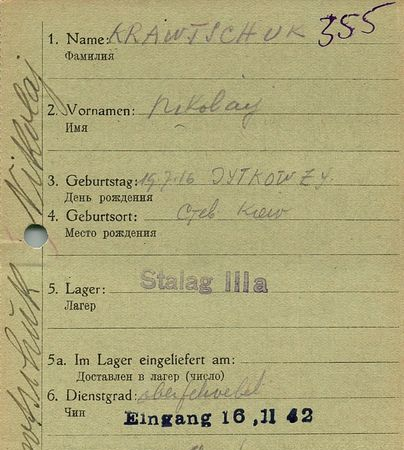 355
1. Name: KRAWTSCHUK
Фамилия
2. Vornamen: Nikolay
Имя
3. Geburtstag: 19.7.16 DYTKOWZY.
День рождения
4. Geburtsort: Kiew
Место рождения
5. Lager: Stalag IIIa
Лагер
5a. Im Lager eingeliefert am:
Доставлен в лагер (число)
6. Dienstgrad:
Чин
Eingang 16.11 42
Nikolaj